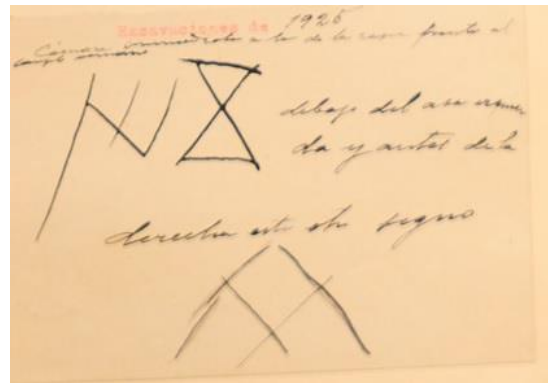 Excavaciones de 1925
Cámara inmediata a la de la rampa frente al
debajo del asa izquier
da y antes de la
derecha este otro signo